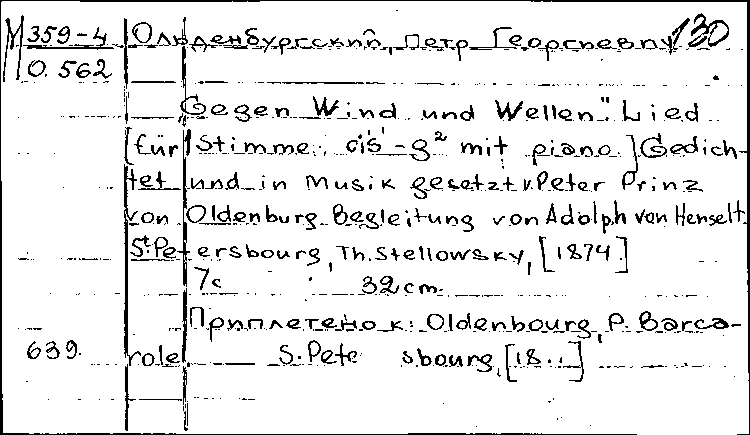 М 359-4 Ольденбургский, Петр Георгиевич 130
O. 562
„Gegen Wind und Wellen". Lied
[für 1 Stimme: cis¹-g² mit piano.] Gedich-
tet und in Musik gesetzt v. Peter Prinz
von Oldenburg. Begleitung von Adolph von Henselt.
St. Petersbourg, Th. Stellowsky, [1874]
7c 32cm.
Приплетено к: Oldenbourg, P. Barca-
639. role S. Pete sbourg, [18..]